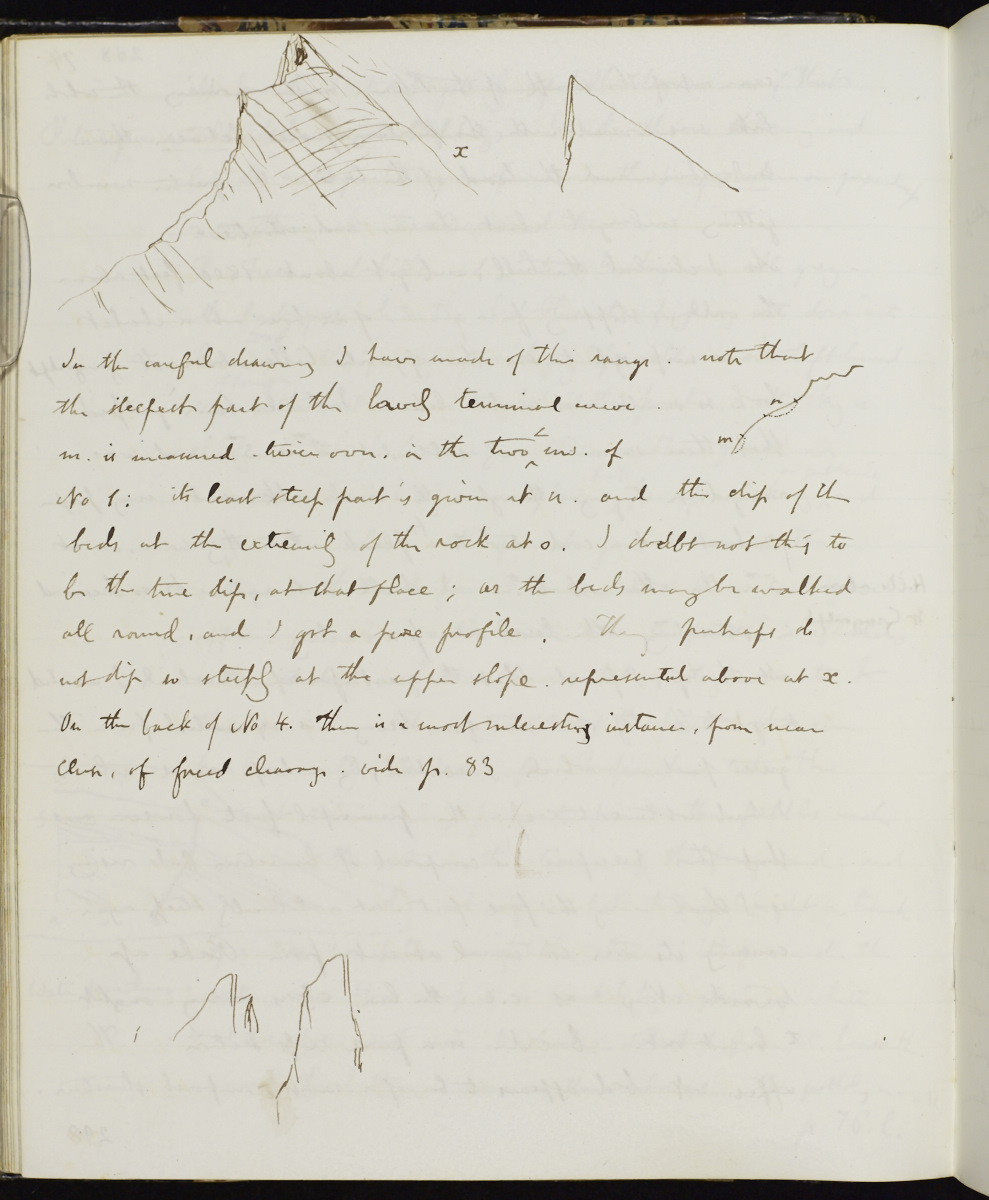 x
In the careful drawing I have made of this range. note that
the steepest part of the lovely terminal curve.
n
m
m. is measured twice over. in the two of
No 1: its least steep part is given at n. and the dip of the
beds at the extremity of the rock at o. I doubt not this to
be the true dip, at that place; as the beds may be walked
all round, and I got a pure profile. They perhaps do
not dip so steeply at the upper slope. represented above at x.
On the back of No 4. there is a most interesting instance, from near
Cluse, of cleavage. vide p. 83